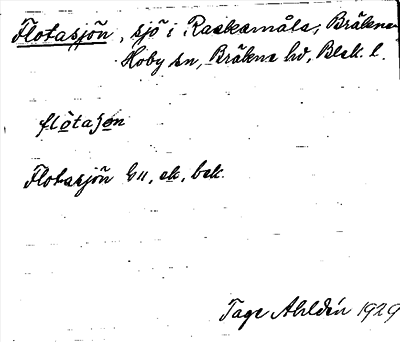 Flotasjön, sjö i Raaksmåla, Bräkne
Hoby sn, Bräkne hd, Blek. l.
flòtaʃøn
Flotasjön GH, ek, bek.
Tage Ahldén 1929